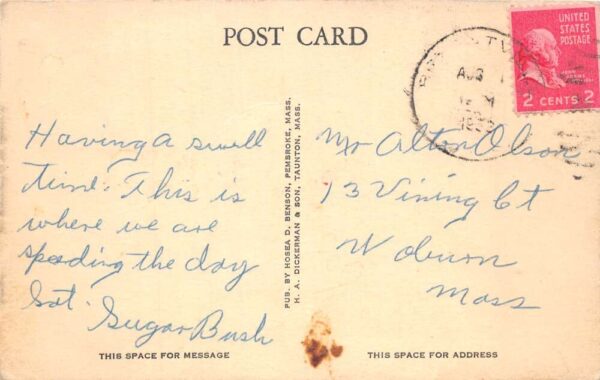 POST CARD
UNITED
STATES
POSTAGE
2 CENTS 2
AUG
Having a swell
time. This is
where we are
spending the day
Sat. Sugar Bush
PUB. BY HOSEA D. BENSON, PEMBROKE, MASS.
H. A. DICKERMAN & SON, TAUNTON, MASS.
Mr Alton Olson
13 Vining Ct
Woburn
Mass
THIS SPACE FOR MESSAGE
THIS SPACE FOR ADDRESS